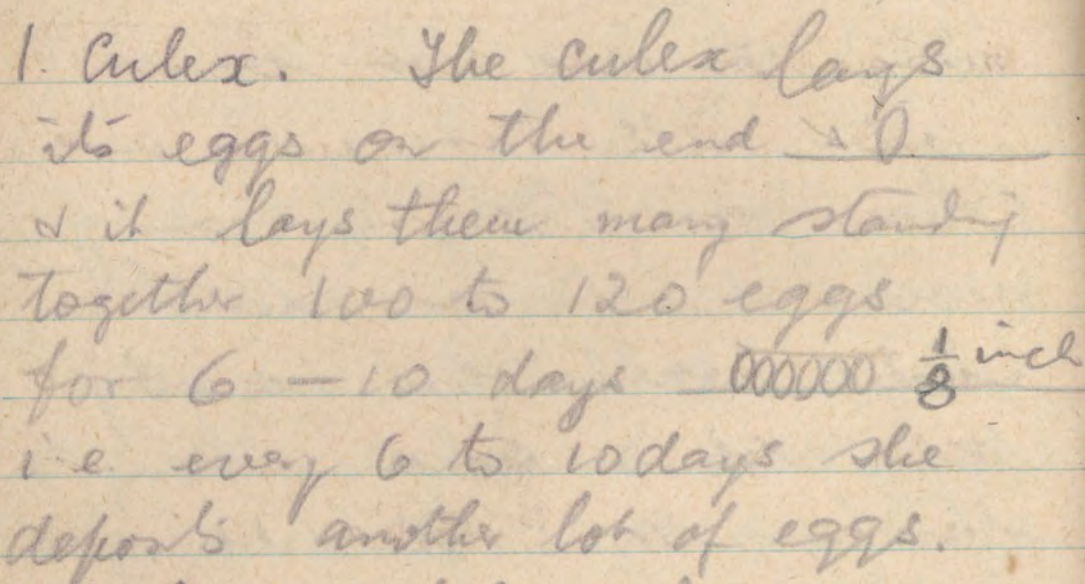 1. Culex. The culex lays
its eggs on the end
& it lays them many standing
together 100 to 120 eggs
for 6 - 10 days 1/8 inch
i.e every 6 to 10 days she
deposits another lot of eggs.